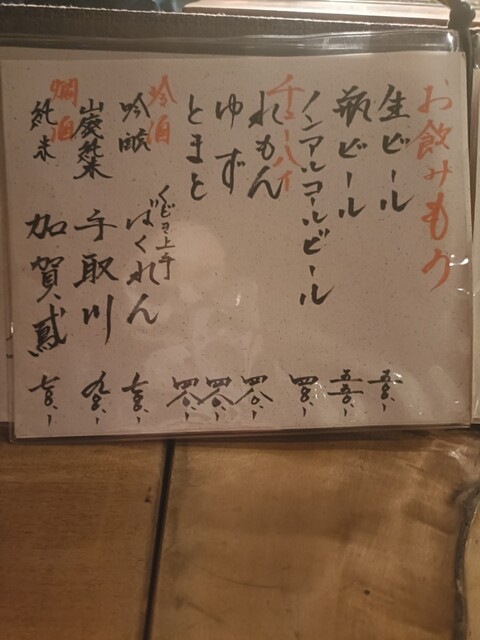 お飲みもの
生ビール
瓶ビール 五五〇.-
ノンアルコールビール
チューハイ
れもん 四八〇.-
ゆず 四八〇.-
とまと 四八〇.-
冷酒
吟醸 くどき上手 ばくれん
山廃純米 手取川
燗酒
純米 加賀鳶